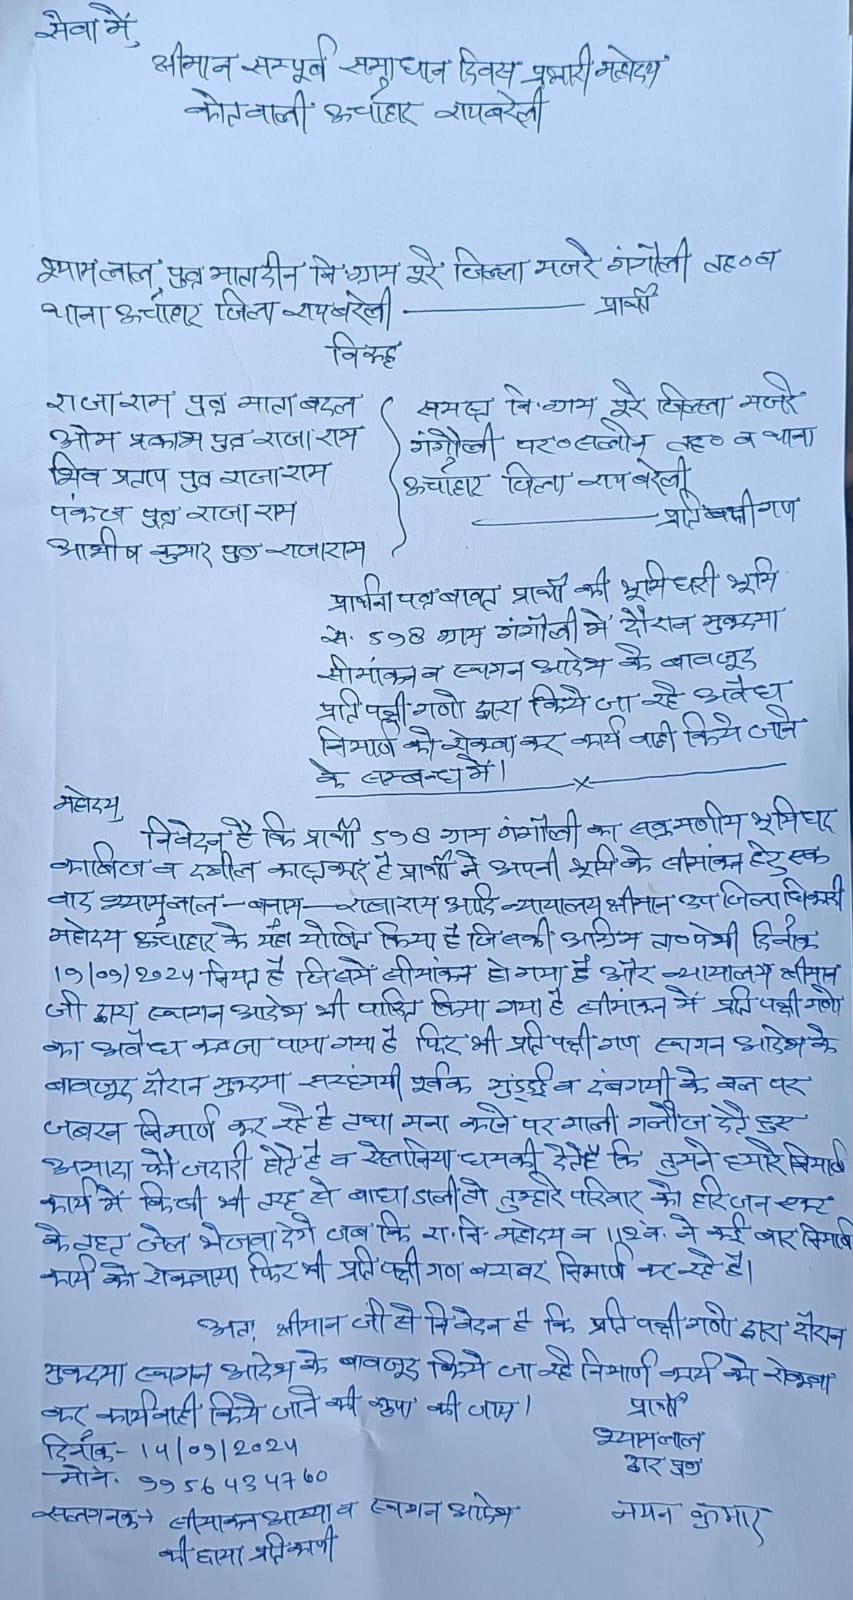 सेवा में,
श्रीमान सम्पूर्ण समाधान दिवस प्रभारी महोदय
कोतवाली ऊचांहार रायबरेली
श्यामलाल पुत्र मातादीन नि.ग्राम पूरे जिल्ला मजरे गंगौली तह० व
थाना ऊचांहार जिला रायबरेली ——— प्रार्थी
विरुद्ध
राजाराम पुत्र माता बदल
ओम प्रकाश पुत्र राजा राम
शिव प्रताप पुत्र राजाराम
पंकज पुत्र राजा राम
आशीष कुमार पुत्र राजाराम
समस्त नि.ग्राम पूरे जिल्ला मजरे
गंगौली पर० सलोन तह० व थाना
ऊचांहार जिला रायबरेली
——— प्रतिपक्षी गण
प्रार्थना पत्र बावत प्रार्थी की भूमिधरी भूमि
सं. 598 ग्राम गंगौली में दौरान मुकदमा
सीमांकन व स्थगन आदेश के बावजूद
प्रतिपक्षी गणो द्वारा किये जा रहे अवैध
निर्माण को रोकवा कर कार्य वाही किये जाने
के सम्बन्ध में।
महोदय,
निवेदन है कि प्रार्थी 598 ग्राम गंगौली का संक्रमणीय भूमिधर
काबिज व दखील काश्तकार है प्रार्थी ने अपनी भूमि के सीमांकन हेतु एक
वाद श्यामलाल - बनाम - राजाराम आदि न्यायालय श्रीमान उप जिलाधिकारी
महोदय ऊचांहार के यहाँ योजित किया है जिसकी अग्रिम ता० पेशी दिनांक
19/09/2024 नियत है जिसमें सीमांकन हो गया है और न्यायालय श्रीमान
जी द्वारा स्थगन आदेश भी पारित किया गया है सीमांकन में प्रतिपक्षी गणो
का अवैध कब्जा पाया गया है फिर भी प्रतिपक्षी गण स्थगन आदेश के
बावजूद दौरान मुकदमा सरहंगयी पूर्वक गुंडई व दबंगयी के बल पर
जबरन निर्माण कर रहे है तथा मना करने पर गाली गलौज देते हुए
अमादा फौजदारी होते है व ऐलानिया धमकी देते है कि तुमने हमारे निर्माण
कार्य में किसी भी तरह से बाधा डाली तो तुम्हारे परिवार को हरिजन एक्ट
के तहत जेल भेजवा देगें जब कि रा.नि. महोदय व 112 नं. ने कई बार निर्माण
कार्य को रोकवाया फिर भी प्रतिपक्षी गण बराबर निर्माण कर रहे है।
अतः श्रीमान जी से निवेदन है कि प्रतिपक्षी गणो द्वारा दौरान
मुकदमा स्थगन आदेश के बावजूद किये जा रहे निर्माण कार्य को रोकवा
कर कार्यवाही किये जाने की कृपा की जाय।
प्रार्थी
दिनांक- 14/09/2024
श्यामलाल
मो.नं. 9956434760
द्वारा पुत्र
संलग्नक→ सीमांकन आख्या व स्थगन आदेश
की छाया प्रति कापी
नयन कुमार